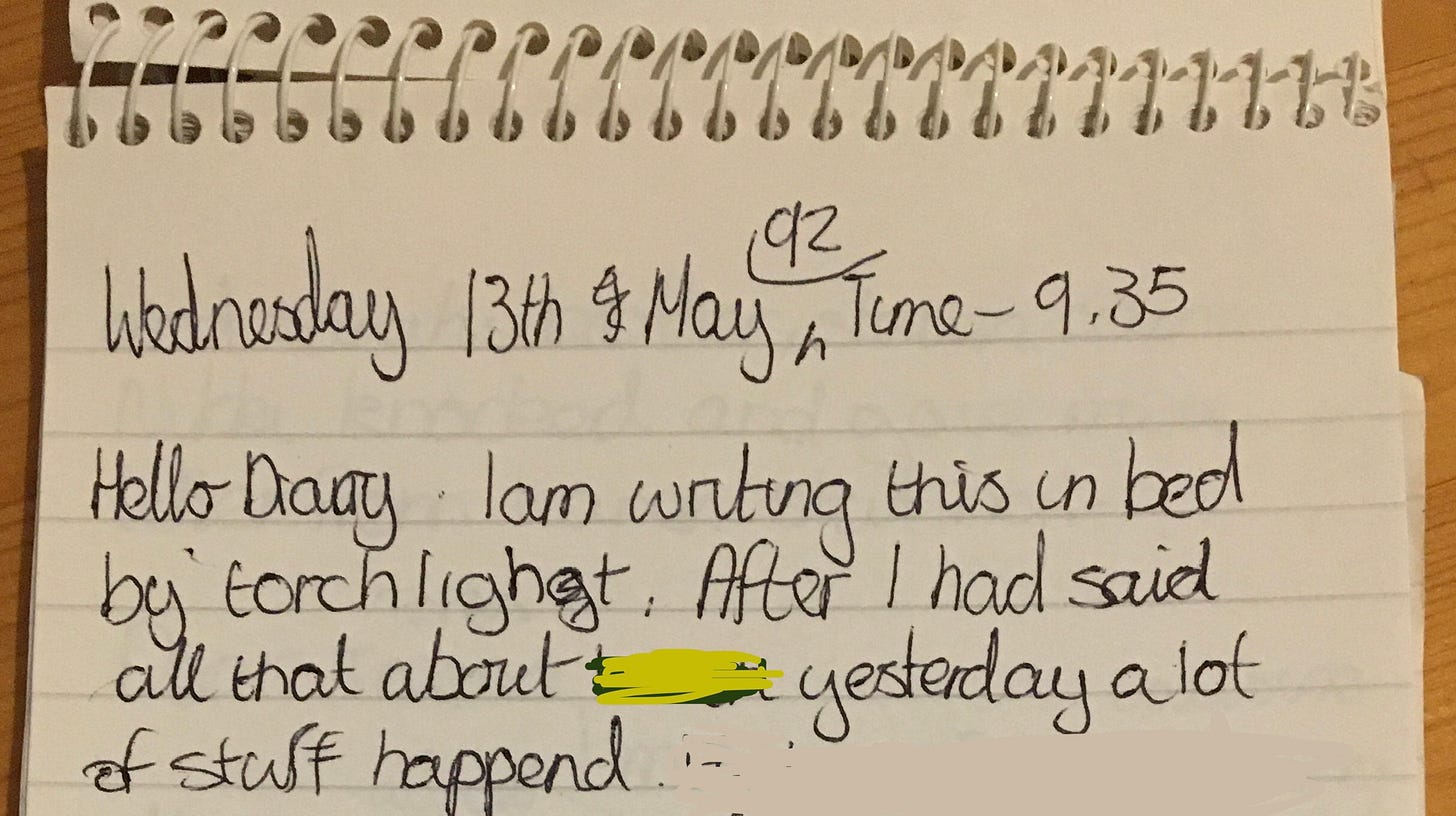 92
Wednesday 13th May, Time - 9.35
Hello Diary. I am writing this in bed
by torchlight. After I had said
all that about yesterday a lot
of stuff happend.